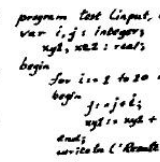 program test (input, 
var i, j : integer;
xy1, xx2 : real;
begin
for i := 1 to 10
begin
j := j + i;
xy1 := xy1 +
end;
writeln ('Result